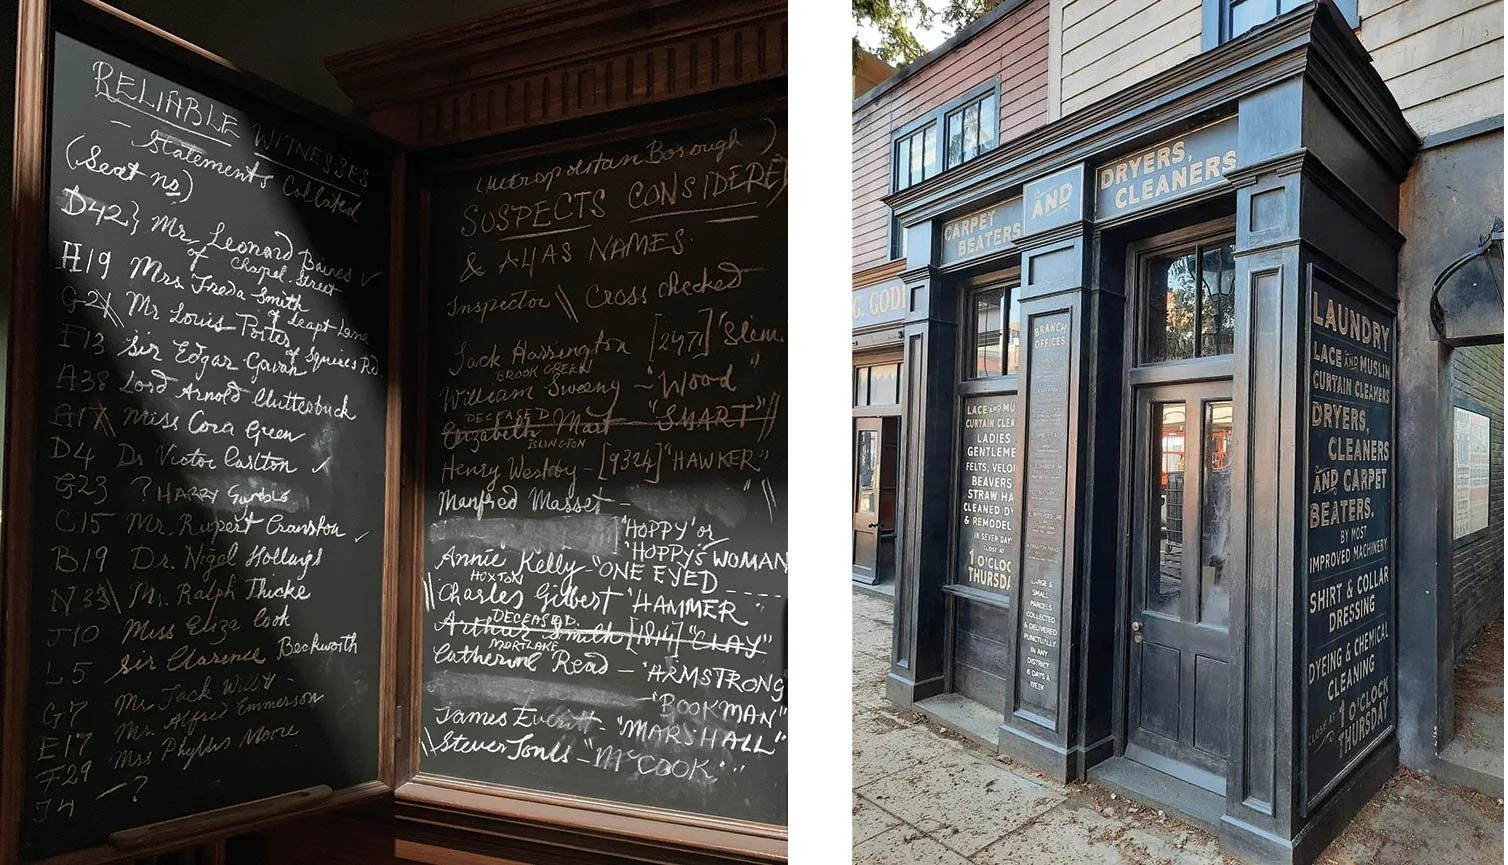 RELIABLE WITNESSES
- Statements Collated
(Seat no)
D42} Mr Leonard Baines ✓
of Chapel Street
H19 Mrs Freda Smith
of Leapt Lane
G21 Mr Louis Porter
of Squires Rd
F13 Sir Edgar Gavan
A38 Lord Arnold Clutterbuck
G17 Miss Cora Green
D4 Dr Victor Carlton ✓
G23 ? HARRY Gamble
C15 Mr. Rupert Cranston ✓
B19 Dr. Nigel
N33 Mr. Ralph Thicke
J10 Miss Eliza Cook
L5 Sir Clarence Beckworth
G7 Mr Jack
E17 Mr. Alfred Emmerson
F29 Mrs Phyllis Moore
J4 - ?
(Metropolitan Borough)
SUSPECTS CONSIDERED
& ALIAS NAMES.
Inspector \\ Cross checked
Jack Harrington [2471]
BROOK GREEN
William Sweeny - "Wood"
DECEASED
Elizabeth Mart - "SMART"
ISLINGTON
Henry Westby - [9324] "HAWKER"
Manfred Masset -
"HOPPY' or
'HOPPY'S WOMAN
Annie Kelly - "ONE EYED
HOXTON
Charles Gilbert 'HAMMER
DECEASED.
Arthur Smith [1814] "CLAY"
MORTLAKE
Catherine Read - "ARMSTRONG
- "BOOKMAN"
James Everitt - "MARSHALL"
Steven Jones - "McCOOK"
CARPET
BEATERS
AND
DRYERS,
CLEANERS
G. GOD
BRANCH
OFFICES
LACE AND MU
CURTAIN CLEA
LADIES
GENTLEME
FELTS, VELO
BEAVERS
STRAW HA
CLEANED DY
& REMODEL
IN SEVEN DAY
CLOSE AT
1 O'CLOC
THURSDA
LARGE &
SMALL
PARCELS
COLLECTED
& DELIVERED
PUNCTUALLY
IN ANY
DISTRICT
6 DAYS A
WEEK
LAUNDRY
LACE AND MUSLIN
CURTAIN CLEANERS
DRYERS,
CLEANERS
AND CARPET
BEATERS.
BY MOST
IMPROVED MACHINERY.
SHIRT & COLLAR
DRESSING
DYEING & CHEMICAL
CLEANING
CLOSE AT 1 O'CLOCK
THURSDAY